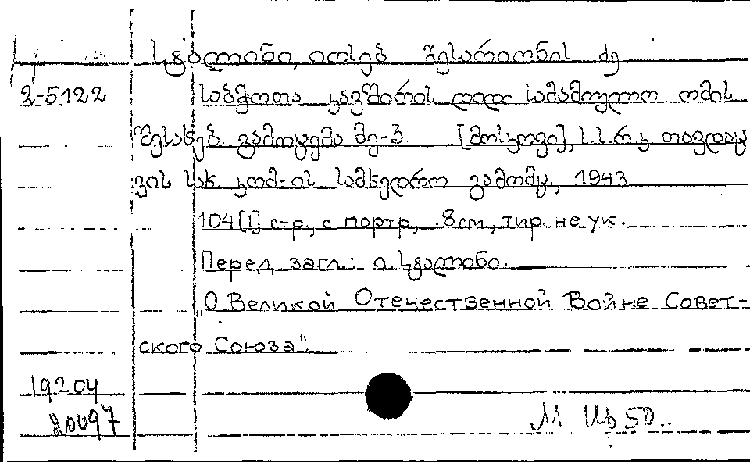 სტალინი, იოსებ ბესარიონის ძე
2-5122 საბჭოთა კავშირის დიდი სამამულო ომის
შესახებ. გამოცემა მე-3 [მოსკოვი], ს.ს.რ.კ თავდაც
ვის სახ. კომ-ის სამხედრო გამომც., 1943
104[1] с-р, с портр, 8см, тир. не ук.
Перед загл.: ი. სტალინი.
"О Великой Отечественной Войне Совет-
ского Союза".
19204
20097